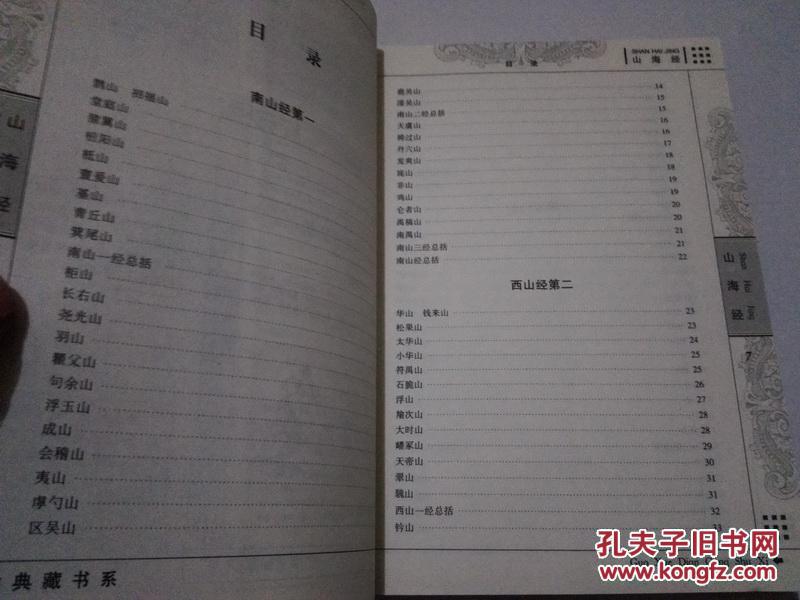 目 录
南山经第一
鹊山 招摇山
堂庭山
猨翼山
杻阳山
柢山
亶爰山
基山
青丘山
箕尾山
南山一经总括
柜山
长右山
尧光山
羽山
瞿父山
句余山
浮玉山
成山
会稽山
夷山
虖勺山
区吴山
典藏书系
山
海
经
目 录
SHAN HAI JING
山 海 经
鹿吴山 14
漆吴山 15
南山二经总括 15
天虞山 16
祷过山 16
丹穴山 17
发爽山 18
旄山 18
非山 19
鸡山 19
仑者山 20
禺槁山 20
南禺山 21
南山三经总括 21
南山经总括 22
西山经第二
华山 钱来山 23
松果山 23
太华山 24
小华山 25
符禺山 25
石脆山 26
浮山 27
羭次山 28
大时山 28
嶓冢山 29
天帝山 30
皋山 31
騩山 31
西山一经总括 32
钤山 33
山 Shan
海 Hai
经 Jing
7
Guo Xue Dian Cang Shu Xi
孔夫子旧书网
www.kongfz.com